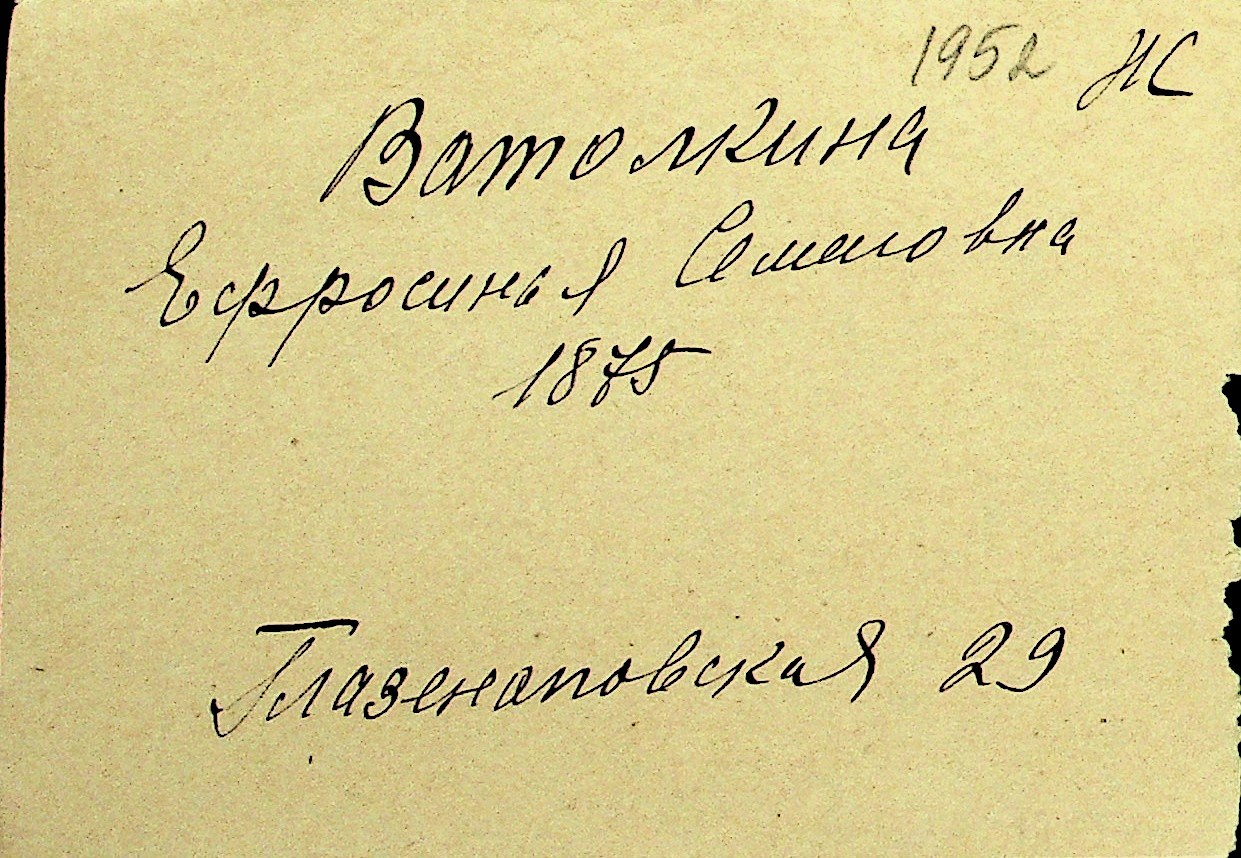 1952 НС
Ватолкина
Ефросинья Семеновна
1875
Глазенаповская 29